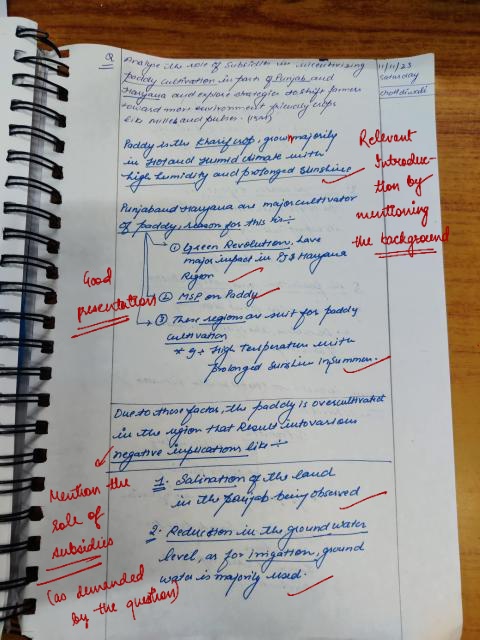 Q Analyse the role of Subsidies in incentivizing
paddy cultivation in parts of Punjab and
Haryana and explore strategies to shift farmers
toward more environment friendly crops
like millets and pulses. (15M)
11/11/23
Saturday
Chotidiwali
Paddy is the Kharif crop, grown majority
in Hot and Humid climate with
high humidity and prolonged Sunshine
Relevant
Introduc-
tion by
mentioning
the background
Punjab and Haryana are major cultivator
of paddy, reason for this is:-
① Green Revolution, have
major impact in PJ & Haryana
Region
Good
presentation
② MSP on Paddy
③ These regions are suit for paddy
cultivation
* eg → High Temperature with
prolonged Sunshine in Summer.
Due to these factor, the paddy is overcultivated
in the region that Result into various
negative implications like :-
1. Salination of the land
in the punjab being observed
Mention the
role of
subsidies
(as demanded
by the question)
2. Reduction in the ground water
level, as for Irrigation, ground
water is majorly used.